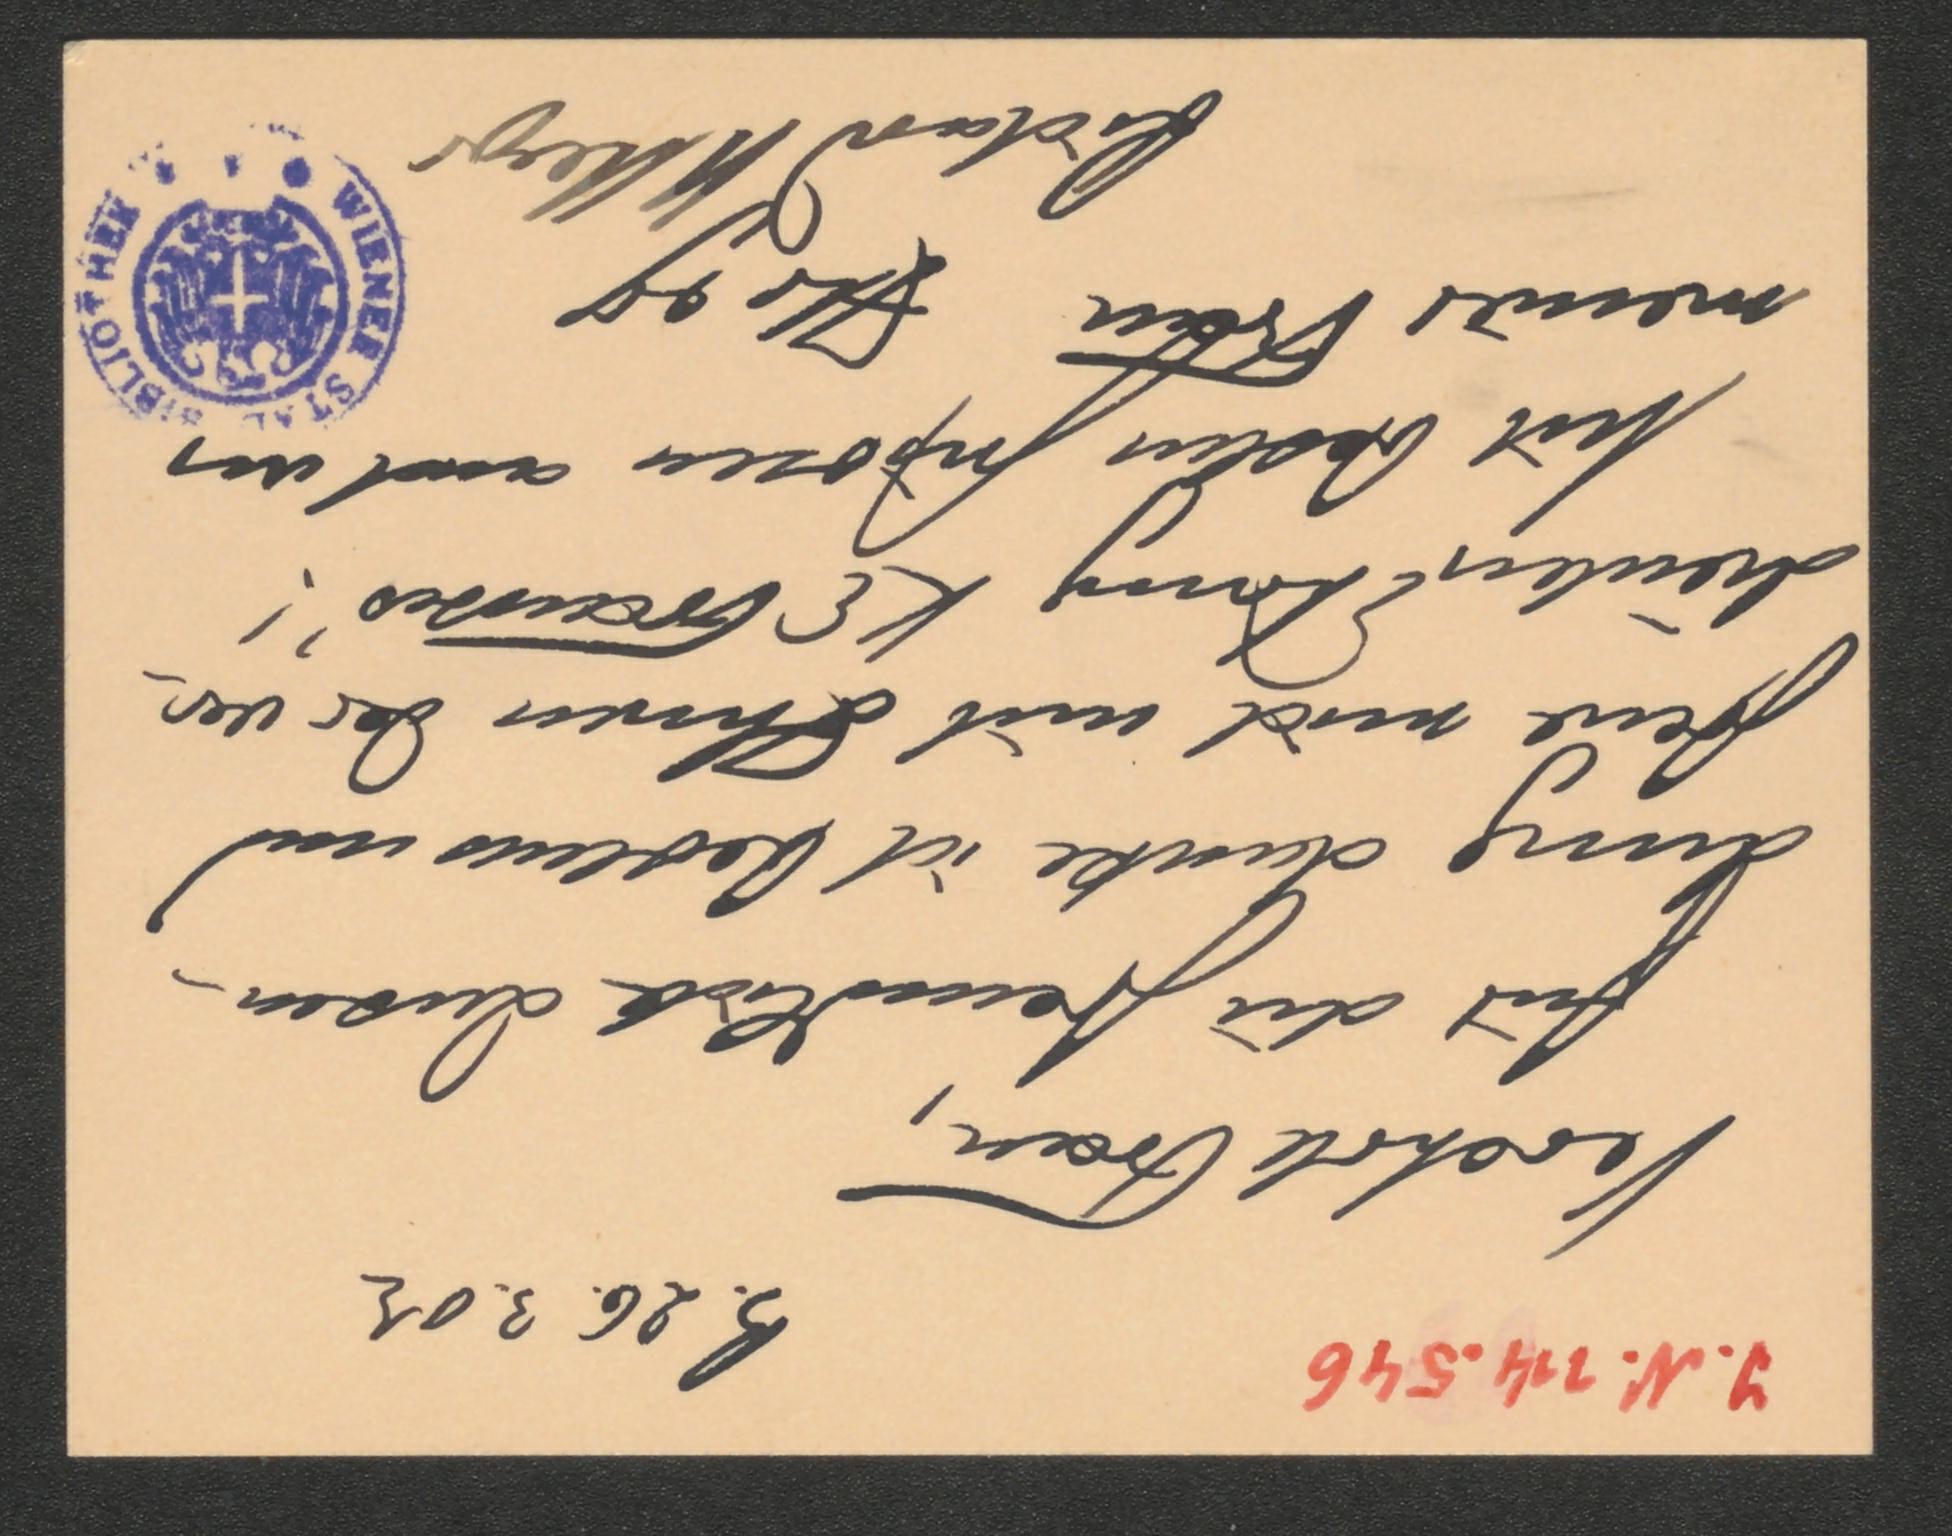 J. N. 114.546
B. 26. 3.
Verehrte Frau,
für die freundliche Zusen-
dung danke ich bestens und
freue mich mit Ihnen der ver-
dienten Ehrung K E Franzos'!
Mit besten Grüßen auch von
meiner Frau Ihr erg
Richard M Meyer
WIENER STADT BIBLIOTHEK